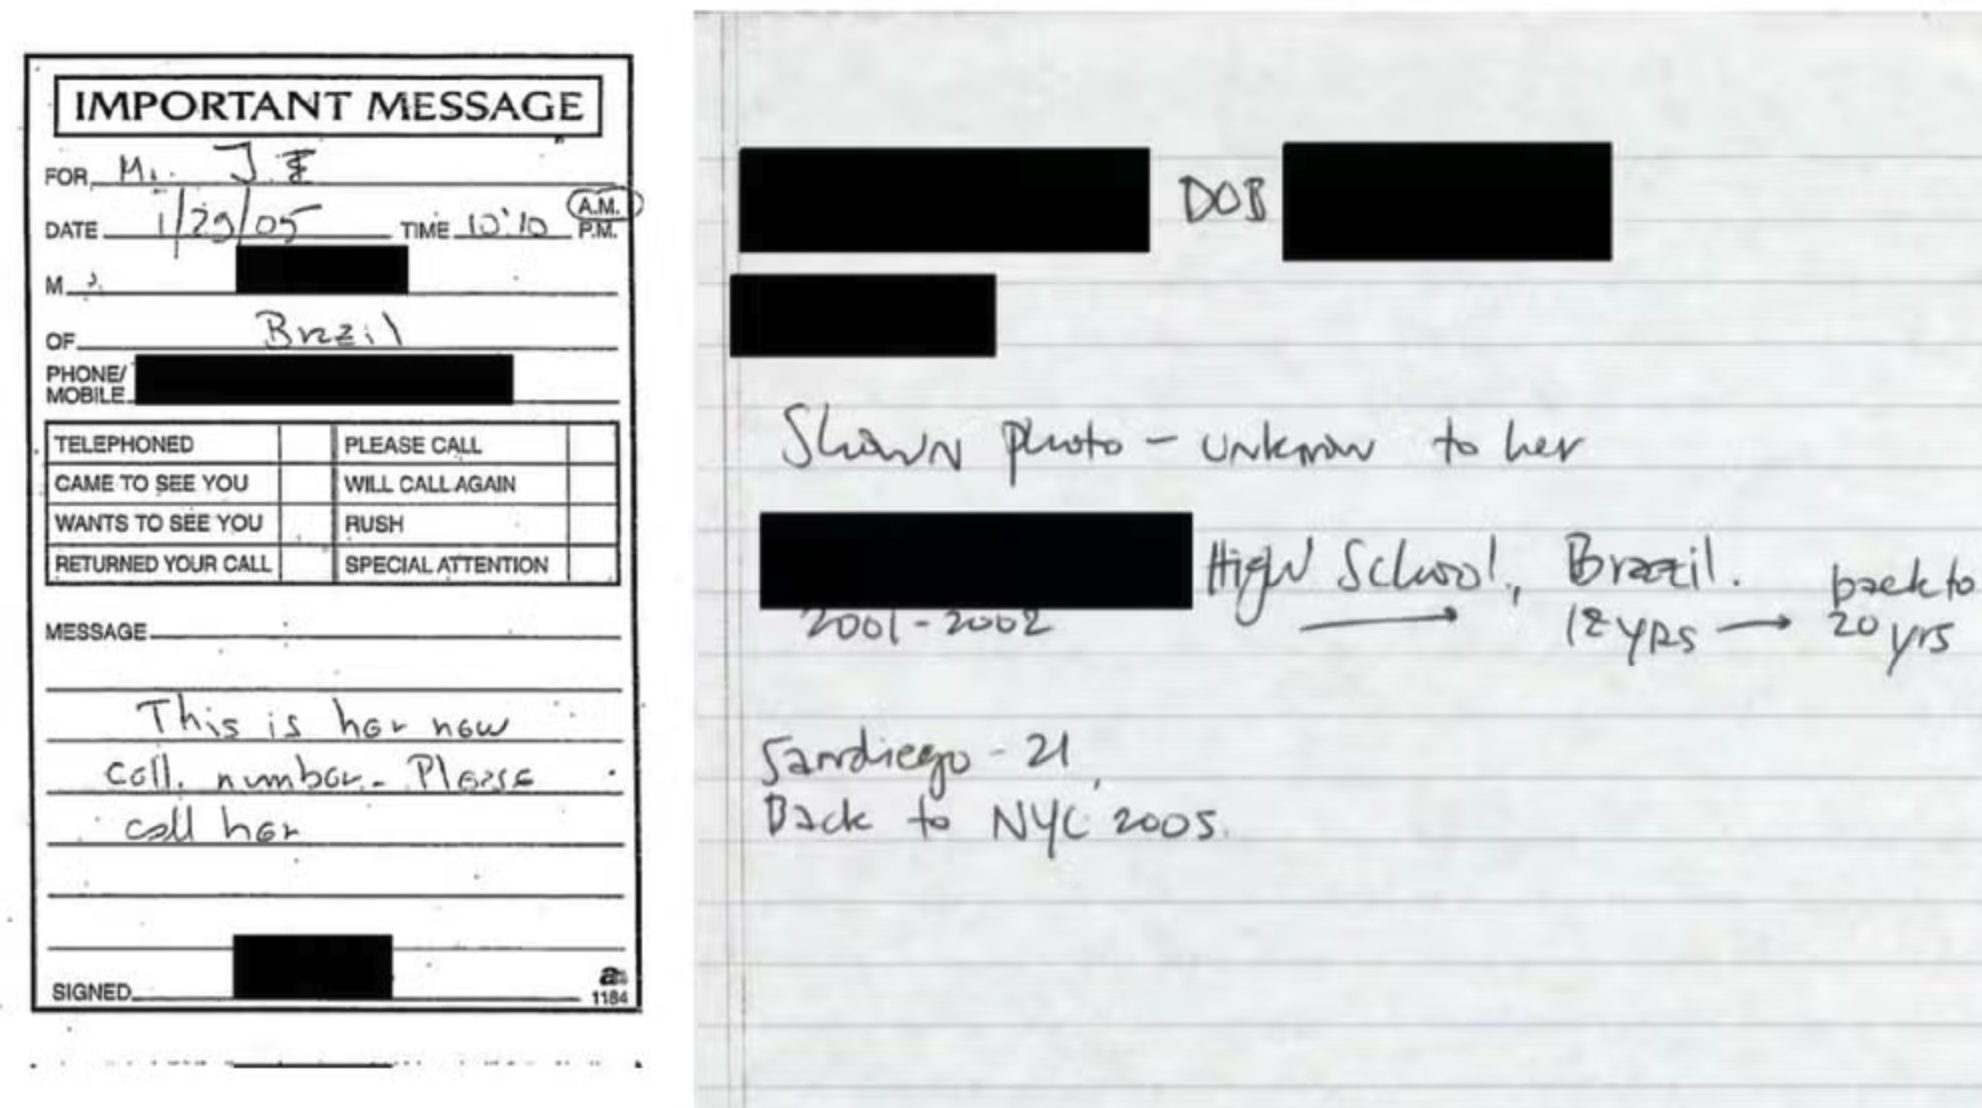 IMPORTANT MESSAGE
FOR Mr. J.E
DATE 1/29/05 TIME 10:10 A.M. P.M.
M s.
OF Brazil
PHONE/
MOBILE
TELEPHONED PLEASE CALL
CAME TO SEE YOU WILL CALL AGAIN
WANTS TO SEE YOU RUSH
RETURNED YOUR CALL SPECIAL ATTENTION
MESSAGE
This is her new
cell. number. Please
call her
SIGNED
1184
DOB
Shown photo - unknown to her
High School, Brazil. back to
2001-2002 → 12 yrs → 20 yrs
Sandiego - 21,
Back to NYC 2005.